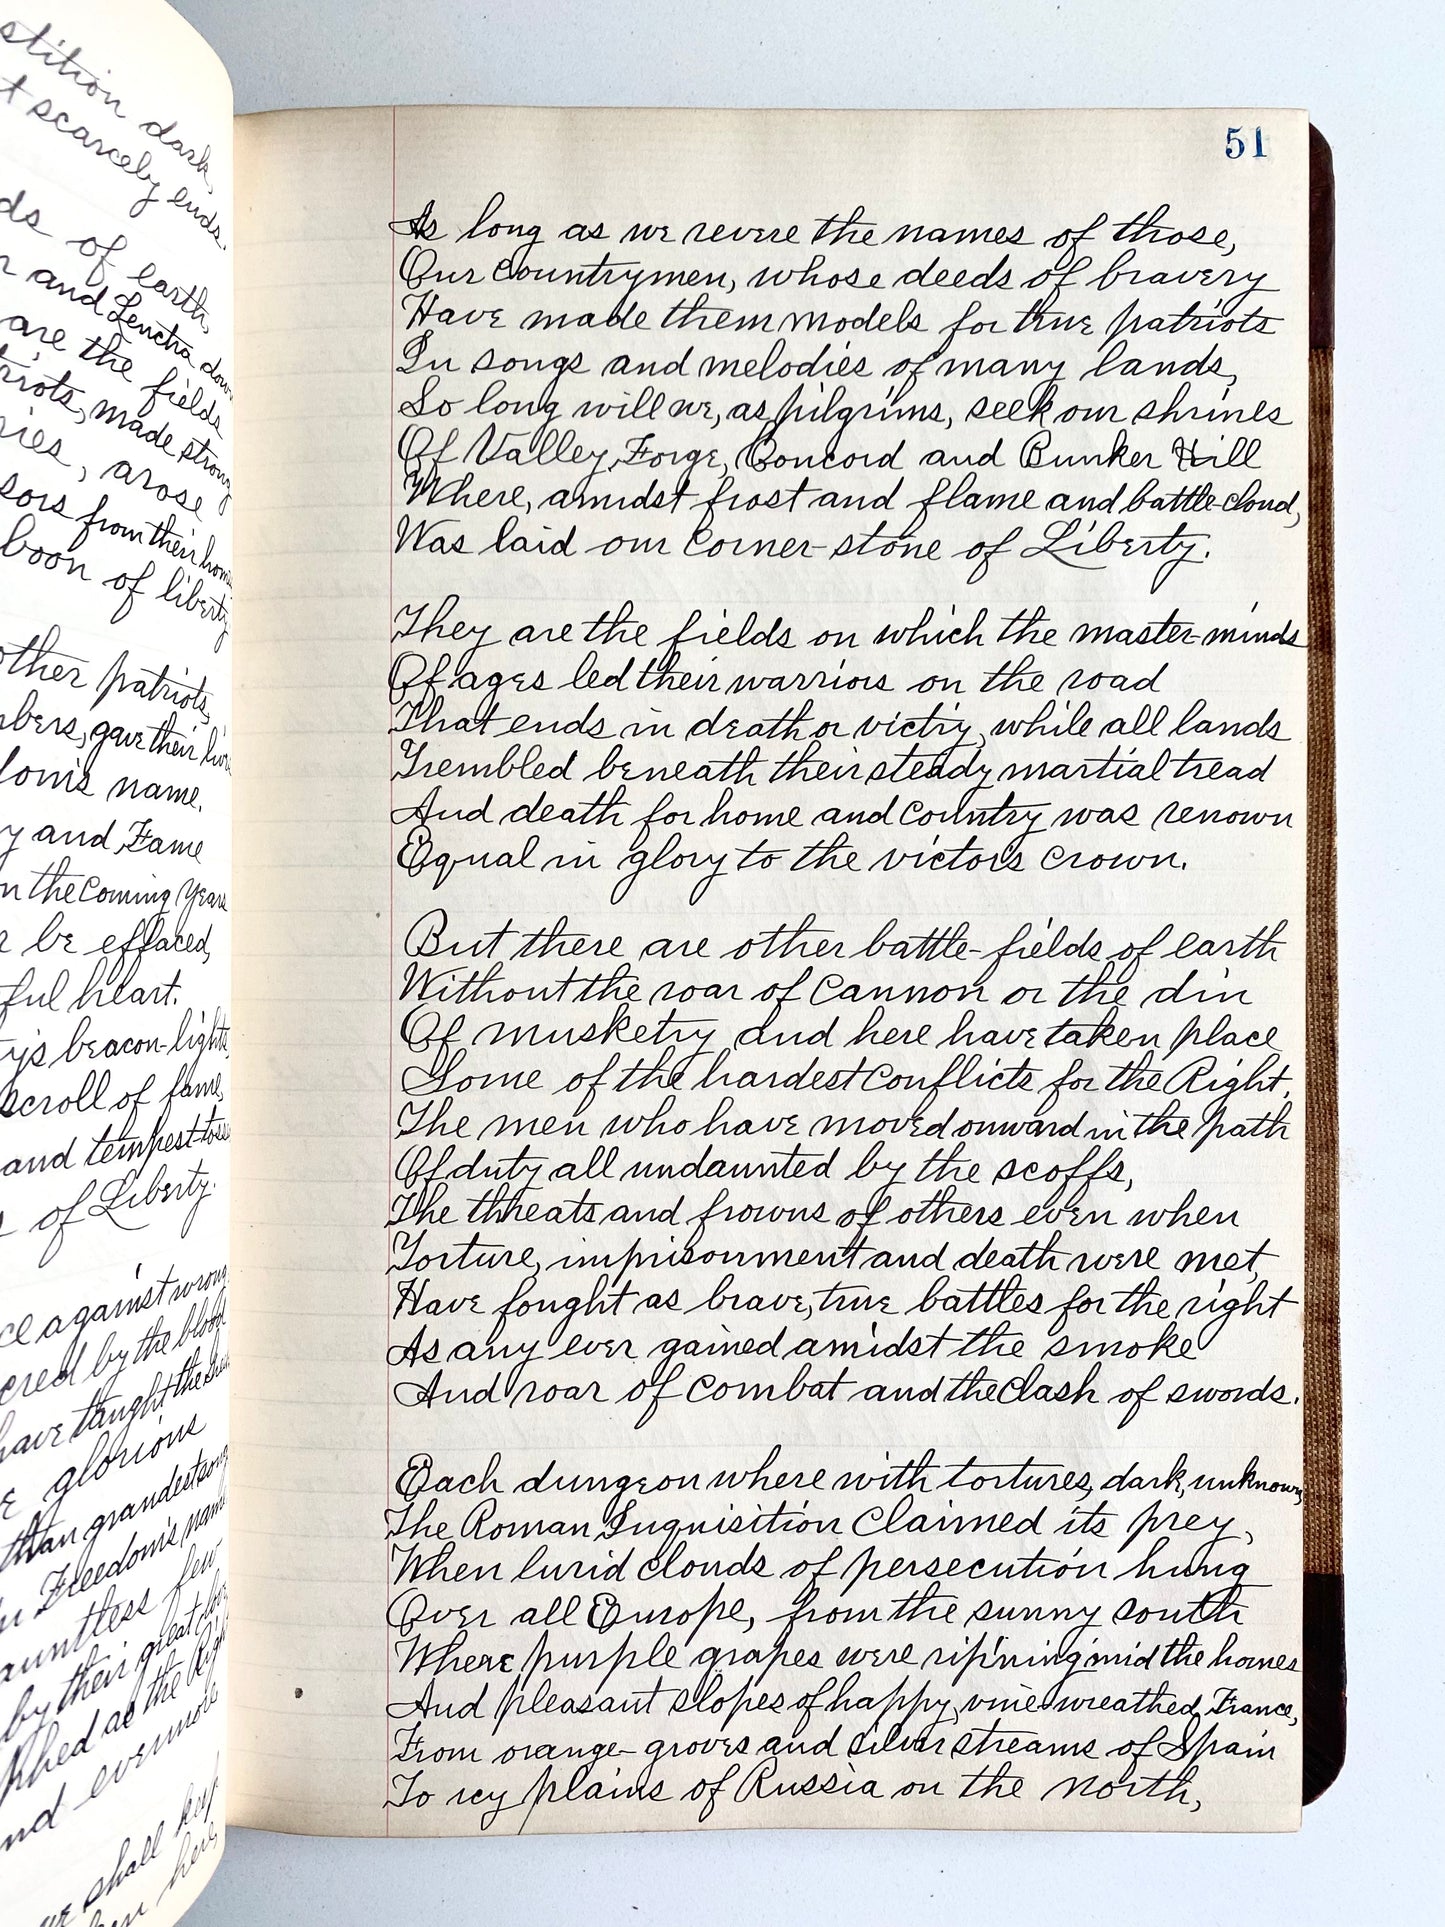 stition dark,
t scarcely ends.
ds of earth,
r and Leuctra down
are the fields
triots, made strong
ies, arose
sors from their homes
boon of liberty
other patriots,
mbers, gave their lives
dom's name.
y and Fame
n the coming years
r be effaced,
ful heart.
ty's beacon-lights
scroll of fame,
and tempest-toss
s of Liberty.
ce against wrong
cred by the blood
have taught the
e glorious
than grandest song
in Freedom's name
auntless few
by their great love
phed as the Right
nd evermore
we shall keep
hen here,
51
As long as we revere the names of those,
Our countrymen, whose deeds of bravery
Have made them models for true patriots
In songs and melodies of many lands,
So long will we, as pilgrims, seek our shrines
Of Valley Forge, Concord and Bunker Hill
Where, amidst frost and flame and battle-cloud,
Was laid our corner-stone of Liberty.
They are the fields on which the master-minds
Of ages led their warriors on the road
That ends in death or vict'ry, while all lands
Trembled beneath their steady martial tread
And death for home and country was renown
Equal in glory to the victor's crown.
But there are other battle-fields of earth
Without the roar of cannon or the din
Of musketry and here have taken place
Some of the hardest conflicts for the Right,
The men who have moved onward in the path
Of duty all undaunted by the scoffs,
The threats and frowns of others even when
Torture, imprisonment and death were met,
Have fought as brave, true battles for the right
As any ever gained amidst the smoke
And roar of combat and the clash of swords.
Each dungeon where with tortures, dark, unknown,
The Roman Inquisition claimed its prey,
When lurid clouds of persecution hung
Over all Europe, from the sunny south
Where purple grapes were rip'ning 'mid the homes
And pleasant slopes of happy, vine-wreathed France,
From orange-groves and silver streams of Spain
To icy plains of Russia on the north,